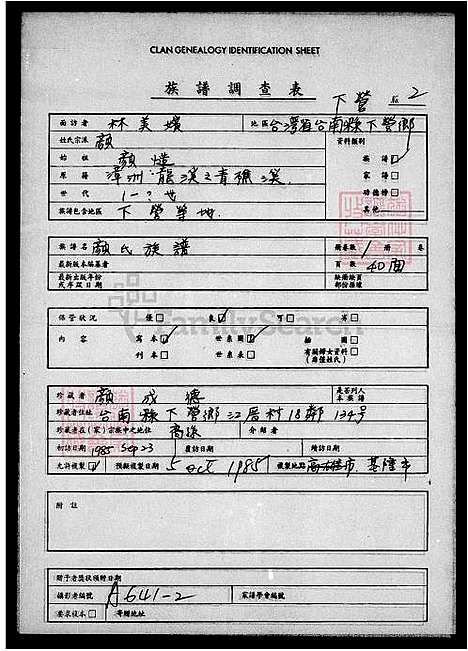 CLAN GENEALOGY IDENTIFICATION SHEET
族譜調查表
下營 2
面訪者 林美媛 地區 台灣省台南縣下營鄉
姓氏宗派 顏 資料類別
始祖 顏 族譜
原籍 漳州龍溪之青礁溪 家譜
世代 1-?世 功德榜
族譜包含地區 下營等地 其他
族譜名 顏氏族譜 1 冊 卷
最新版本編纂者 頁數 40面
最新出版年份或序跋日期 缺損缺頁部份張嫁
保管狀況 優 良 可 劣
內容 寫本 世系圖 插圖
刊本 世系表 有關婦女資料(啓僅姓氏)
珍藏者 顏成德 是否列入本族譜
珍藏者住址 台南縣下營鄉22厝村18鄰134号
珍藏者在(家)宗族中之地位 裔孫 介紹者
初訪日期 1985 Sep 23 覆訪日期 續訪日期
允許複製 預擬複製日期 5 oct 1985 複製地點 高雄市 基隆市
附註
贈予者獎狀頒贈日期
攝影者編號 A641-2 家譜學會編號
要求複本 寄贈地址
FamilySearch